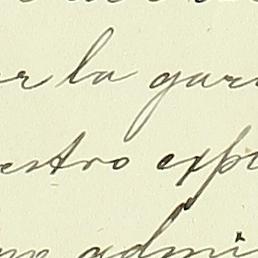 er la gara
estro expo
admi